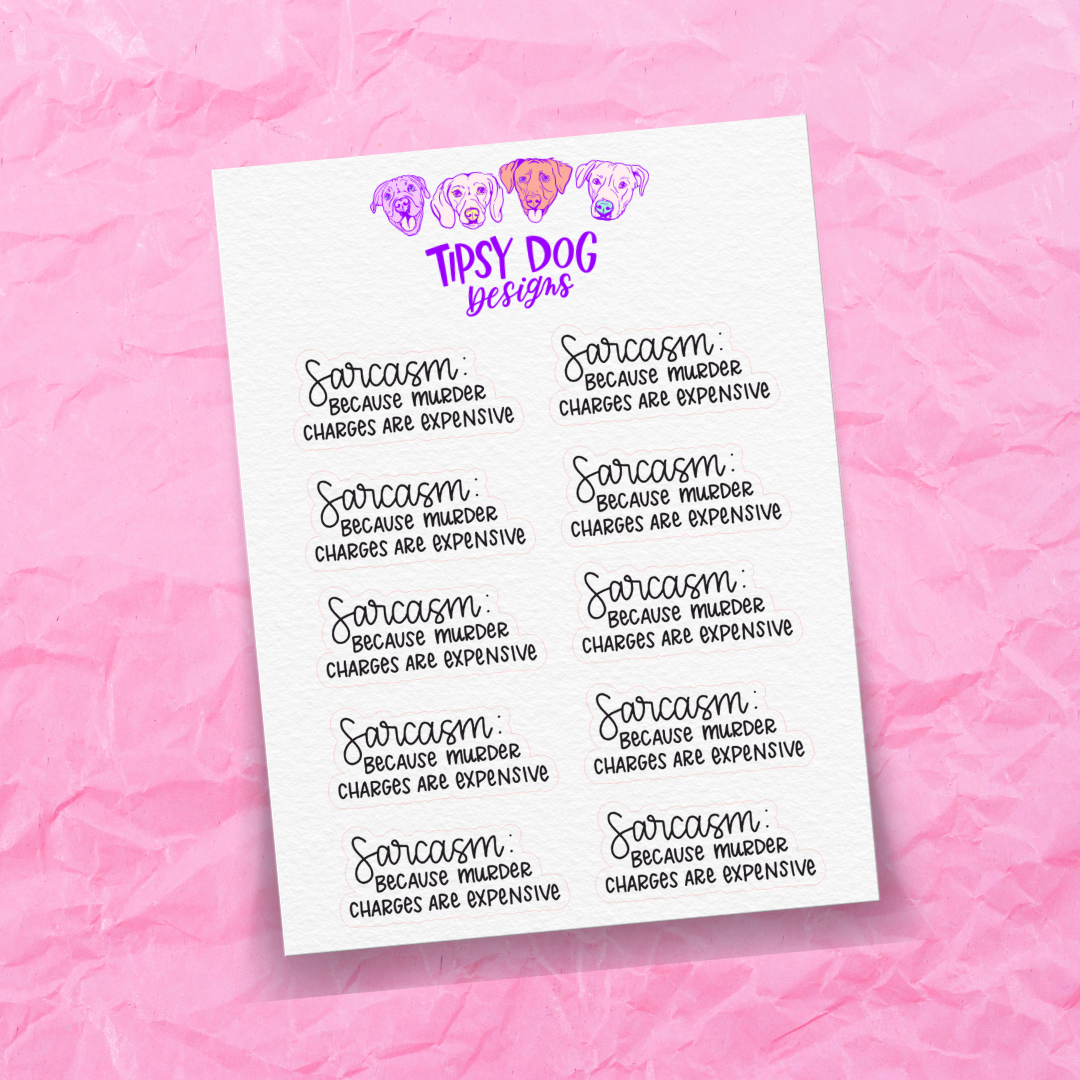 TIPSY DOG
Designs
Sarcasm:
BECAUSE MURDER
CHARGES ARE EXPENSIVE
Sarcasm:
BECAUSE MURDER
CHARGES ARE EXPENSIVE
Sarcasm:
BECAUSE MURDER
CHARGES ARE EXPENSIVE
Sarcasm:
BECAUSE MURDER
CHARGES ARE EXPENSIVE
Sarcasm:
BECAUSE MURDER
CHARGES ARE EXPENSIVE
Sarcasm:
BECAUSE MURDER
CHARGES ARE EXPENSIVE
Sarcasm:
BECAUSE MURDER
CHARGES ARE EXPENSIVE
Sarcasm:
BECAUSE MURDER
CHARGES ARE EXPENSIVE
Sarcasm:
BECAUSE MURDER
CHARGES ARE EXPENSIVE
Sarcasm:
BECAUSE MURDER
CHARGES ARE EXPENSIVE